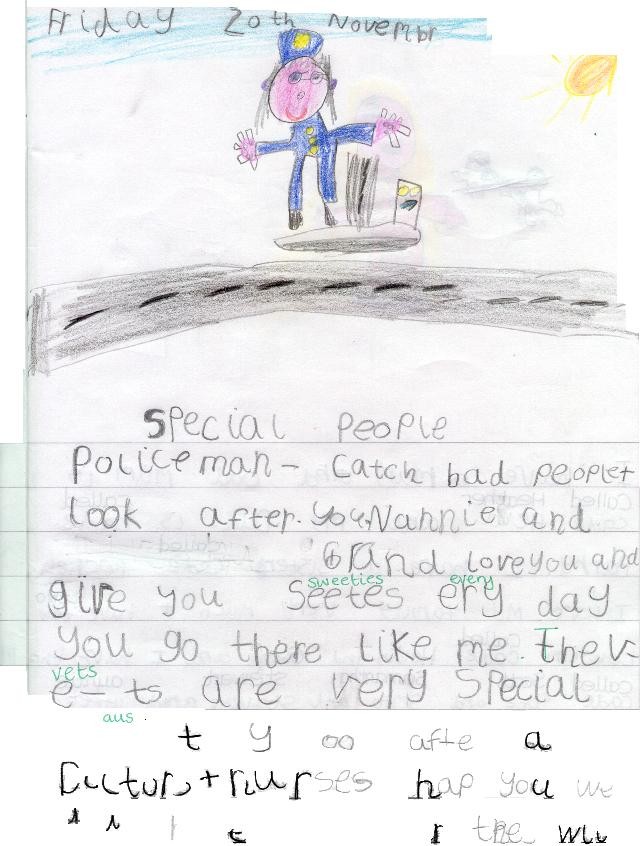 Friday 20th Novembr
Special People
Policeman - Catch bad people +
look after. you, Nannie and
Grand love you and
sweeties every
give you Seetes ery day
you go there like me. The v
vets
e-ts are very special
aus
t y oo afte a
Doctors + nurses hap you we
the